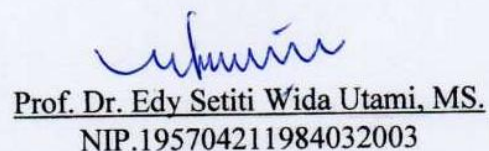 Prof. Dr. Edy Setiti Wida Utami, MS.
NIP.195704211984032003